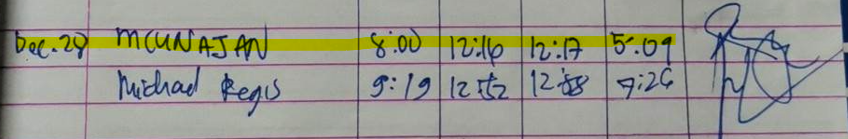 Dec. 28 MCUNAJAN 8:00 12:16 12:17 5:09
Michael Regis 9:19 12:52 12:58 7:26